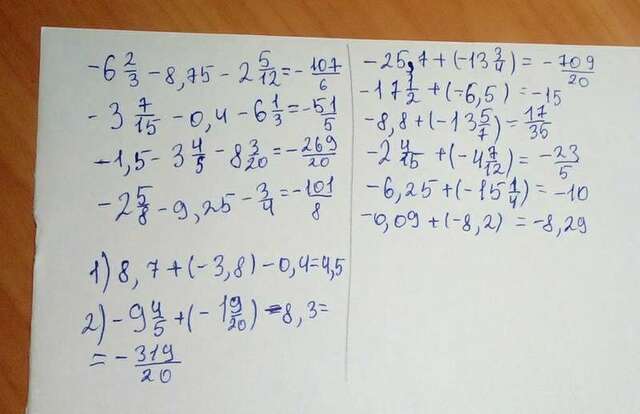 -6 2/3 - 8,75 - 2 5/12 = - 107/6
-3 7/15 - 0,4 - 6 1/3 = - 51/5
-1,5 - 3 4/5 - 8 3/20 = - 269/20
-2 5/8 - 9,25 - 3/4 = - 101/8
1) 8,7 + (-3,8) - 0,4 = 4,5
2) - 9 4/5 + (- 1 9/20) - 8,3 =
= - 319/20
-25,7 + (-13 3/4) = - 709/20
-17 1/2 + (-6,5) = -15
-8,8 + (-13 5/7) = 17/36
-2 4/15 + (-4 7/12) = - 23/5
-6,25 + (-15 1/4) = -10
-0,09 + (-8,2) = -8,29